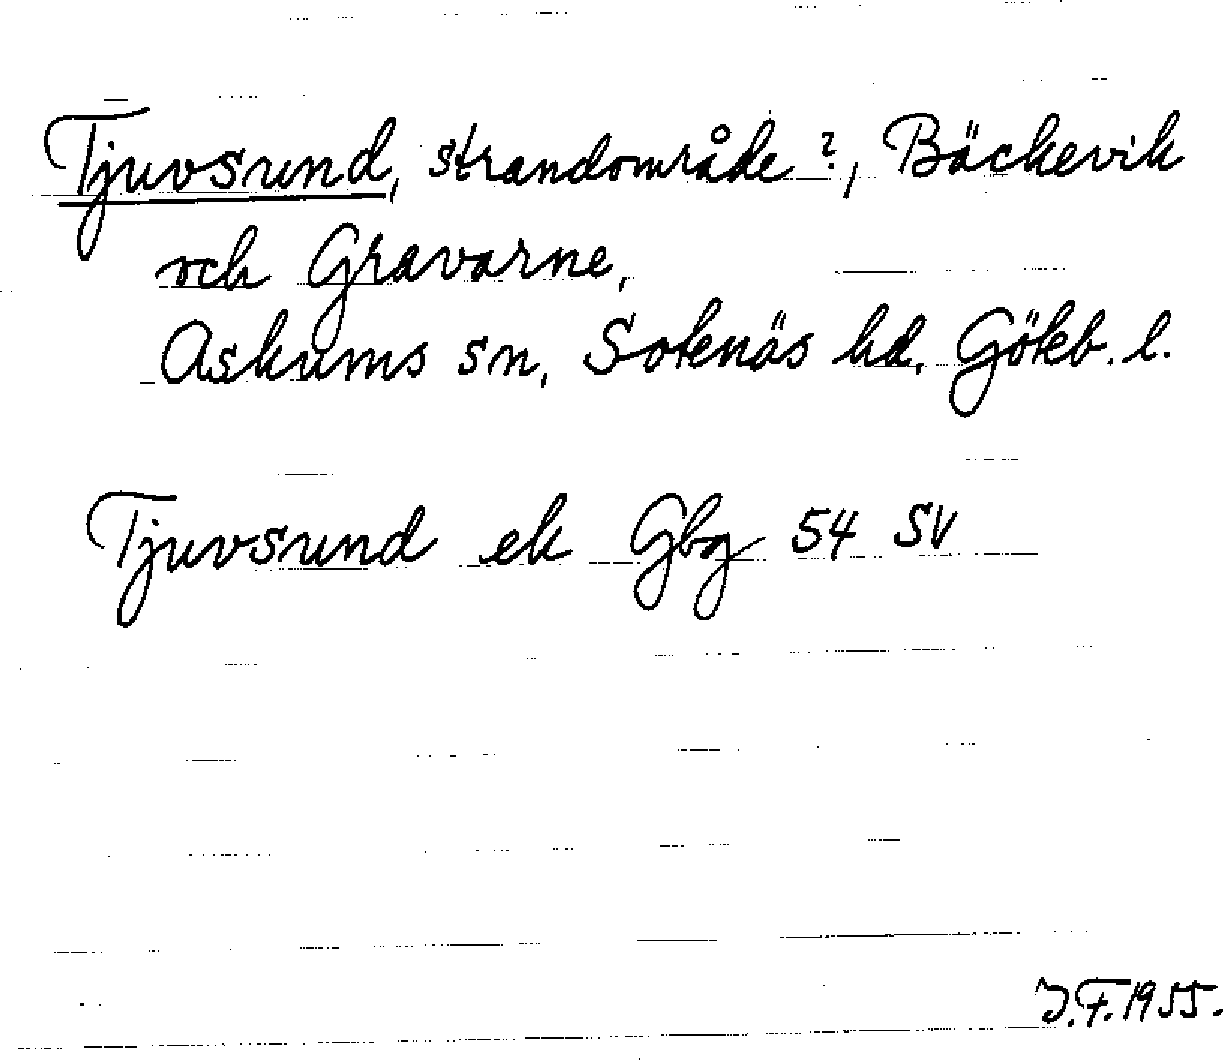 Tjuvsund, strandområde?, Bäckevik
och Gravarne,
Askums sn, Sotenäs hd, Göteb. l.
Tjuvsund ek Gbg 54 SV
J.F. 1955.